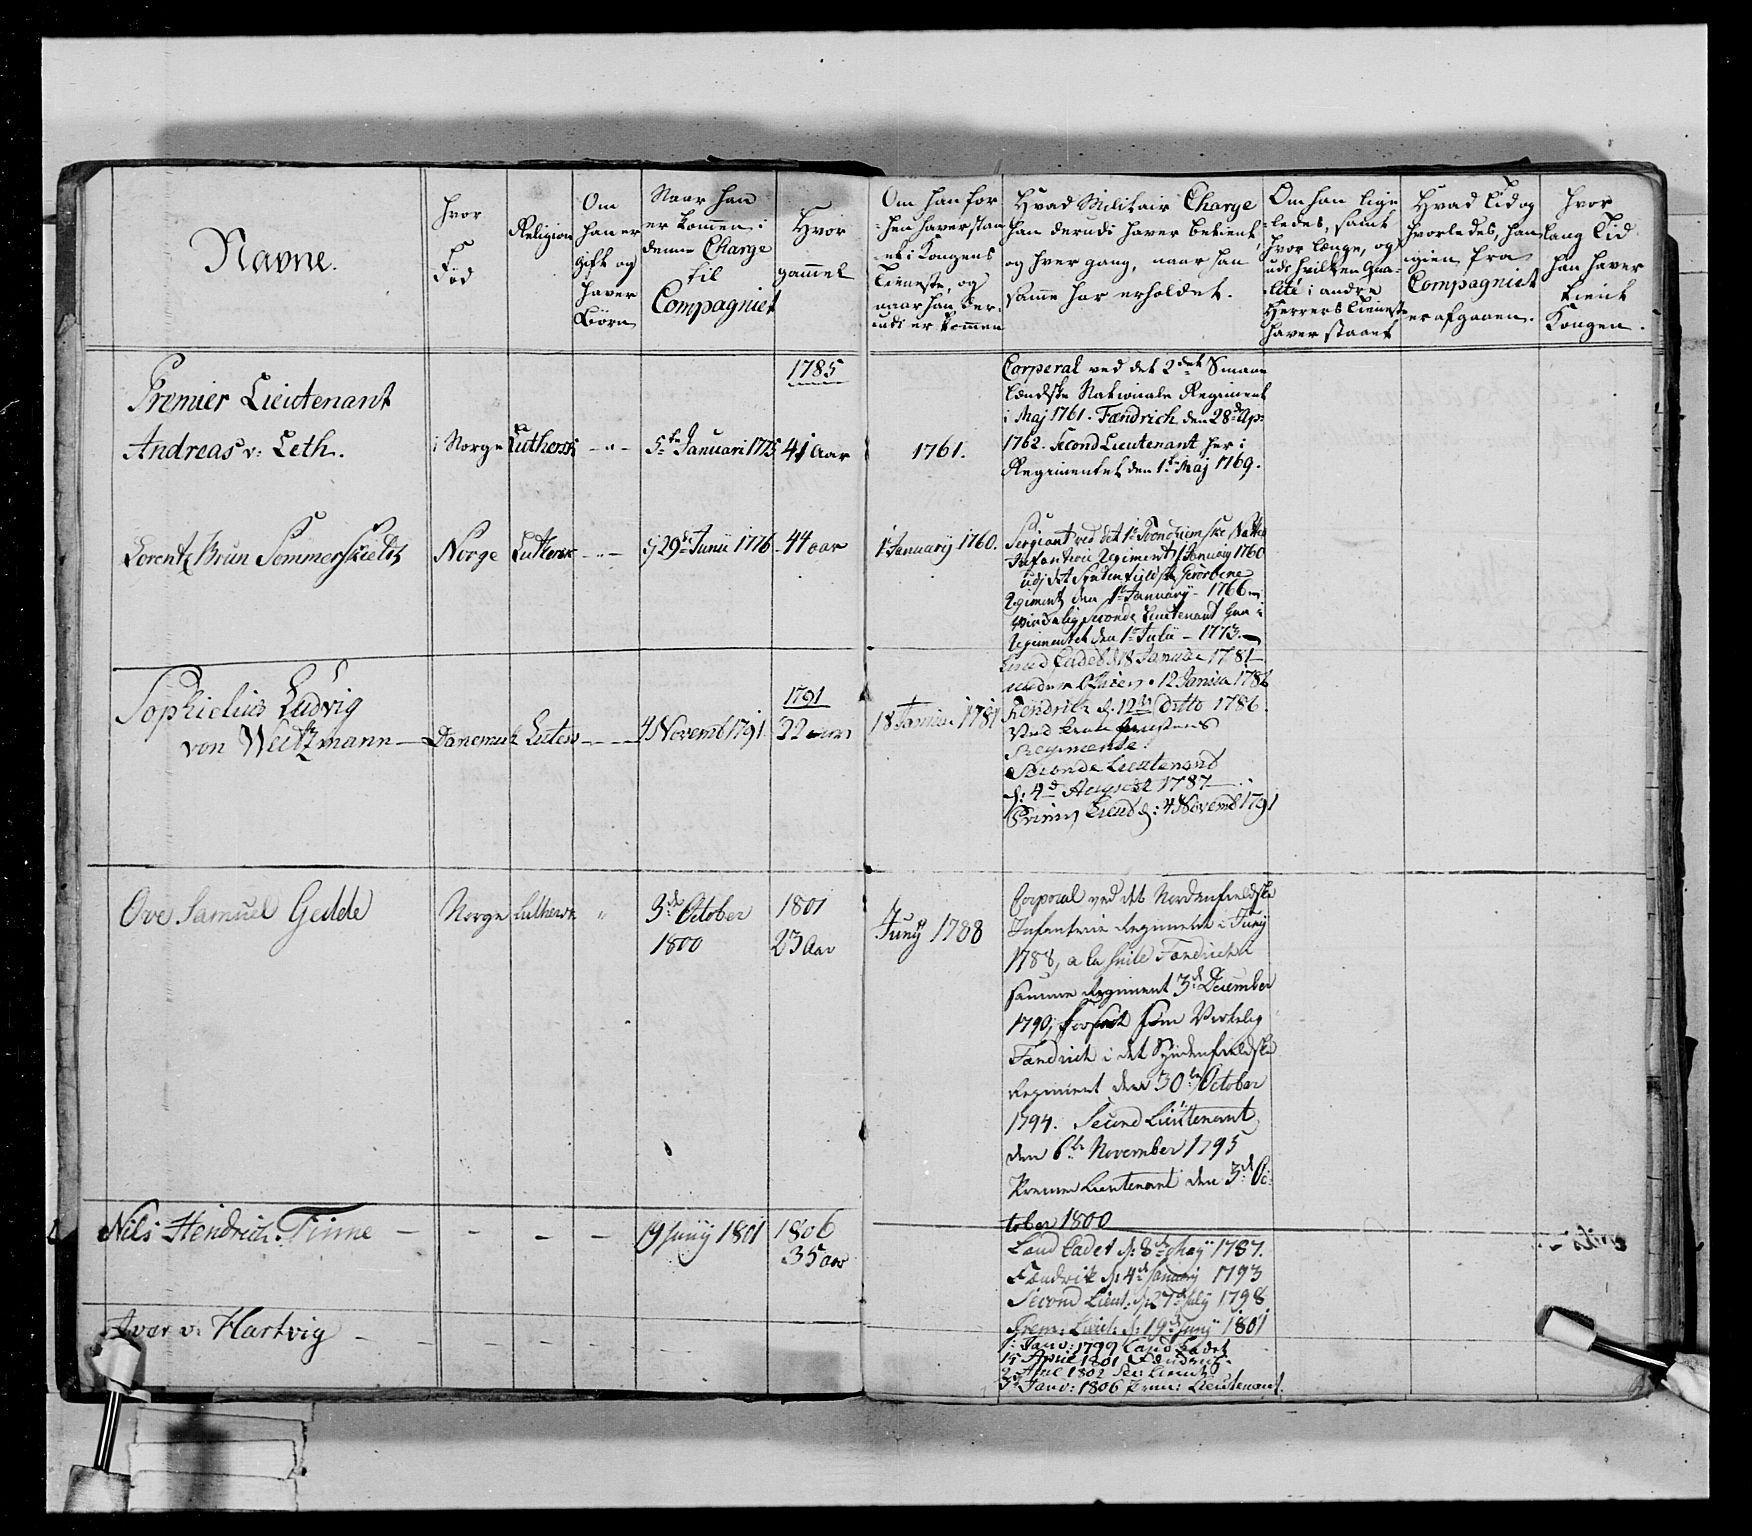 Navne.
Hvor
Fød
Religion
Om
han er
gift og
haver
Børn
Naar han
er kommen i
denne Charge
til
Compagniet
Hvor
gammel
Om han for
hen haver staa
et i Kongens
Tieneste, og
naar han der
udi er kommen
Hvad Militair Charge
han derudi haver betient,
og hver gang, naar han
samme har erholdet.
Om han lige
ledes, samt
hvor længe, og
udi hvilken Qua
lité i andre
Herrers Tieneste
haver staaet
Hvad Tid og
hvorledes, han
igien fra
Compagniet
er afgaaen.
Hvor
lang Tid
han haver
tient
Kongen.
Premier Lieutenant
Andreas v: Leth.
i Norge
Luthersk
5te Januari 1775
1785
41 Aar
1761.
Corperal ved det 2det Smaae
lændske Nationale Regiment
i Maj 1761. Fændrich den 28de Ap:
1762. Second Lieutenant her i
Regimentet den 1te Maj 1769.
Lorentz Brun Sommerskieldt
Norge
Luthersk
29de Junii 1776
44 aar
1te Januarij 1760.
Sergiant ved det 1te Trondhiemske Nation
Infanterie Regiment 1 Januarij 1760
udj det Søndenfieldske Geworbene
Regiment den 1te Januarij 1766
Secunde Lieutenant her i
Regimentet den 1te Julii – 1773.
Sophielius Ludvig
von Weitzmann
Danemark
Luters
4 Novemb 1791
1791
22 aar
18 Januar 1781
Land Cadet d 18 Januar 1781
12 Janua 1786
Fendrich d. 12te ditto 1786.
Regimente.
Seconde Lieutenand
d: 4de August 1787
Primi Lieud d: 4 Novemb 1791
Ove Samuel Gedde
Norge
Luthersk
"
3de October
1800
1801
23 Aar
Junij 1788
Corporal ved det Nordenfieldske
Infanterie Regiment i Junij
1788, a la suite Fændrich v
samme Regiment 3de December
1790, forsat som Virkelig
Fændrich i det Syndenfieldske
Regiment den 30te October
1794. Second Lieutenant
den 6te November 1795
Premier Lieutenant den 3de Oc
tober 1800
Nils Hendrich Finne
19 Junij 1801
1806
35 aar
Land Cadet d: 8de Maij 1787.
Fændrik d: 4de Januarij 1793
Second Lieut: d: 27de July 1798
Prem: Lieut: d: 19de Junij 1801
Ivar v. Hartvig
1: Janv: 1799 Land Cadet
15 April 1801 Fændrich
2 April 1802 Sec: Lieut
3de Janv: 1806 Prem: Lieutenant.